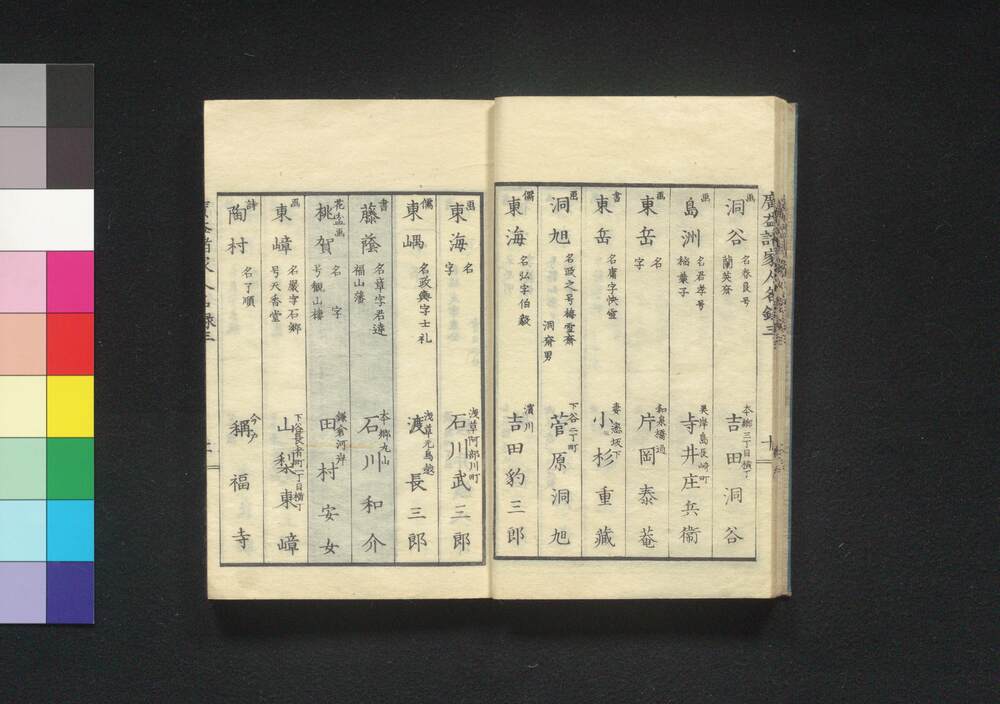 廣益諸家人名録三
画 洞谷 名春良号蘭英齋 本郷三丁目横丁 吉田洞谷
画 島洲 名君孝号梧葉子 霊岸島長崎町 寺井庄兵衞
画 東岳 名 字 和泉橋通 片岡泰菴
書 東岳 名庸字 妻恋坂下 小杉重藏
画 洞旭 名政之号梅雪齋 洞齋男 下谷二丁町 菅原洞旭
儒 東海 名弘字伯毅 濱川 吉田豹三郎
画 東海 名 字 浅草阿部川町 石川武三郎
儒 東嵎 名政輿字士礼 浅草元鳥越 渡長三郎
書 藤蔭 名章字君達 福山藩 本郷丸山 石川和介
花盆画 桃賀 名 字 号観山楼 鎌倉河岸 田村安女
画 東嶂 名嚴字石郷 号天香堂 下谷長者町一丁目横丁 山梨東嶂
詩 陶村 名了順 今戸 稱福寺